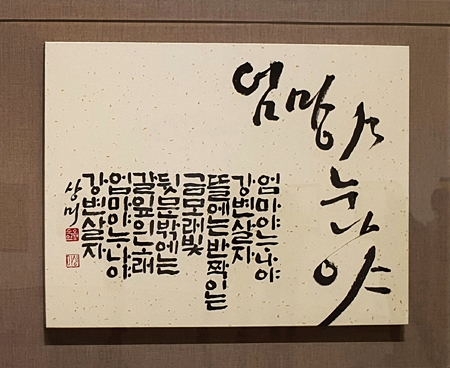 엄마야
누나야
엄마야 누나야
강변 살자
뜰에는 반짝이는
금모래빛
뒷문 밖에는
갈잎의 노래
엄마야 누나야
강변 살자
상미